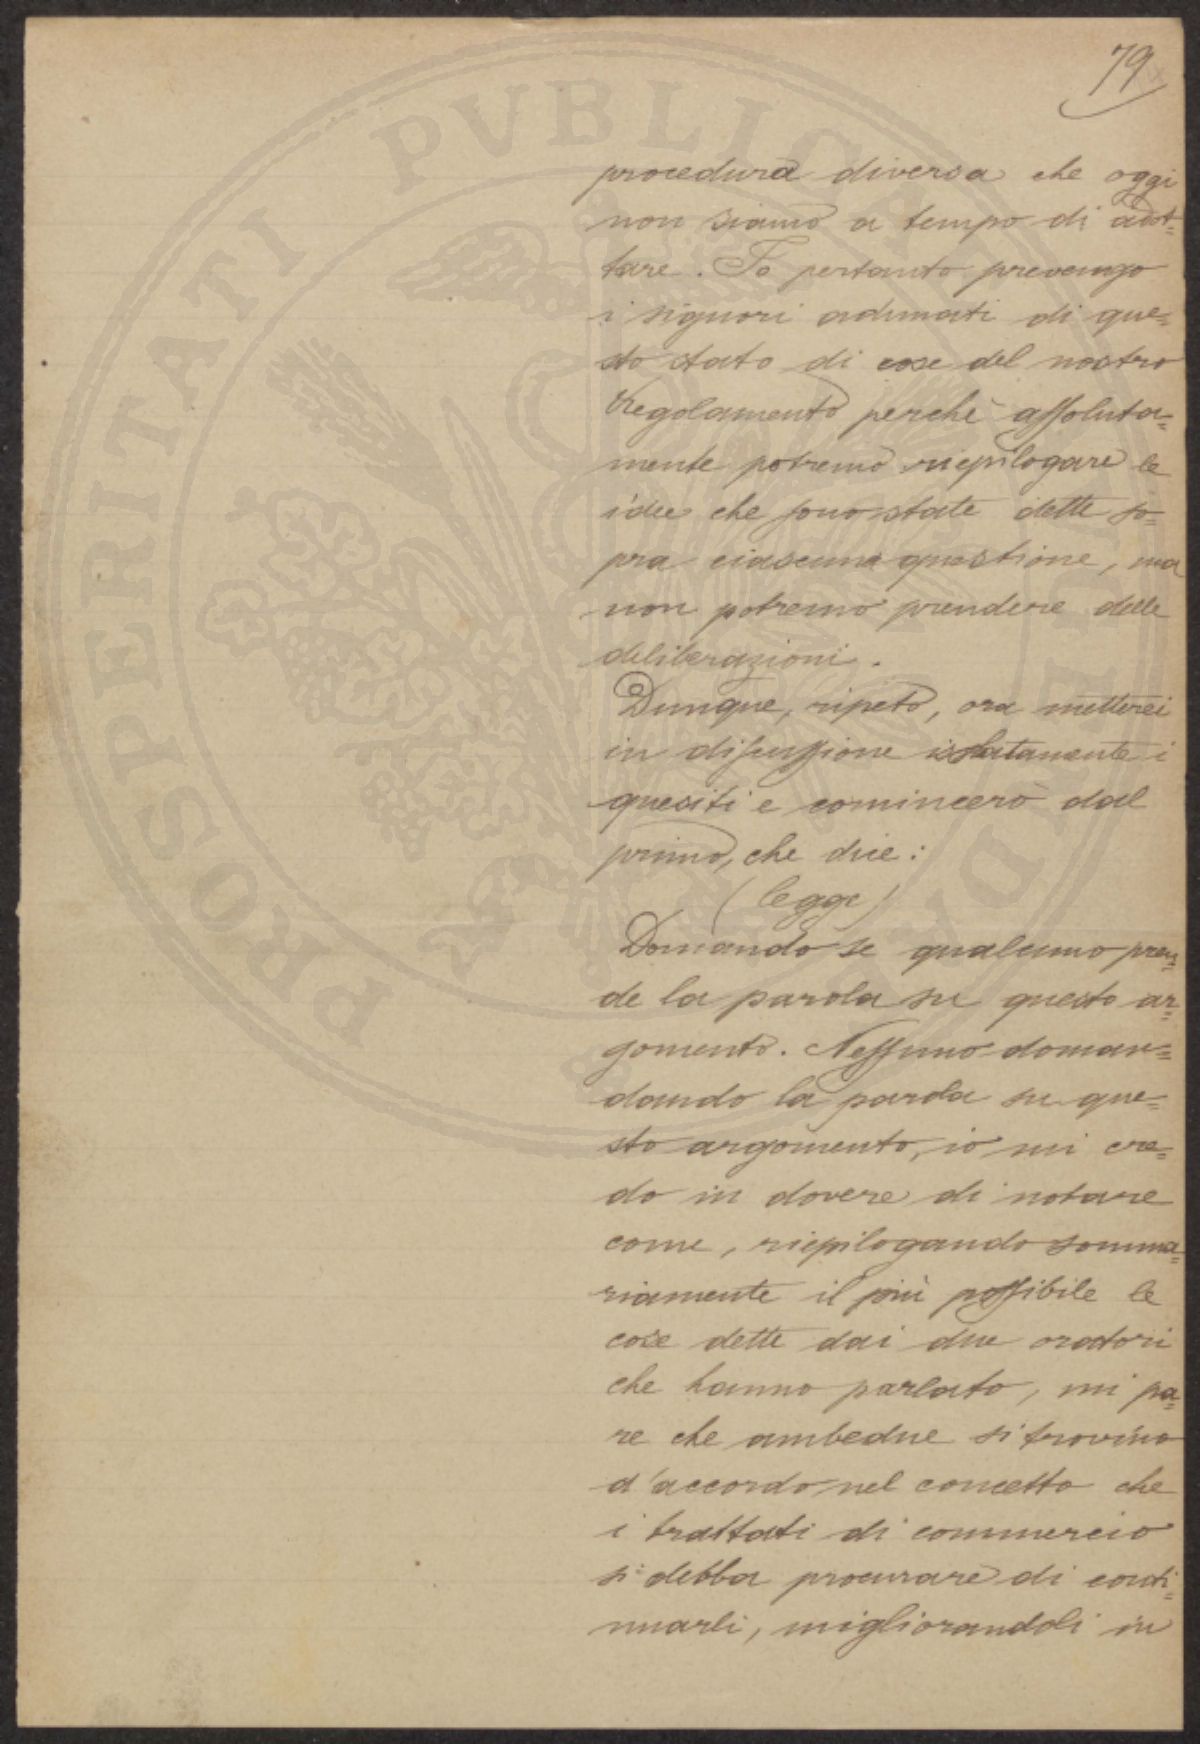 79
procedura diversa che oggi
non siamo a tempo di adot=
tare. Io pertanto prevengo
i signori adunati di que=
sto stato di cose del nostro
Regolamento perchè assoluta=
mente potremo riepilogare le
idee che sono state dette so=
pra ciascuna questione, ma
non potremo prendere delle
deliberazioni.
Dunque, ripeto, ora metterei
in discussione isolatamente i
quesiti e comincerò dal
primo, che dice:
(legge)
Domando se qualcuno pren=
de la parola su questo ar=
gomento. Nessuno doman=
dando la parola su que=
sto argomento, io mi cre=
do in dovere di notare
come, riepilogando somma=
riamente il più possibile le
cose dette dai due oratori
che hanno parlato, mi pa=
re che ambedue si trovino
d'accordo nel concetto che
i trattati di commercio
si debba procurare di conti=
nuarli, migliorandoli in
PROSPERITATI PVBLICAE